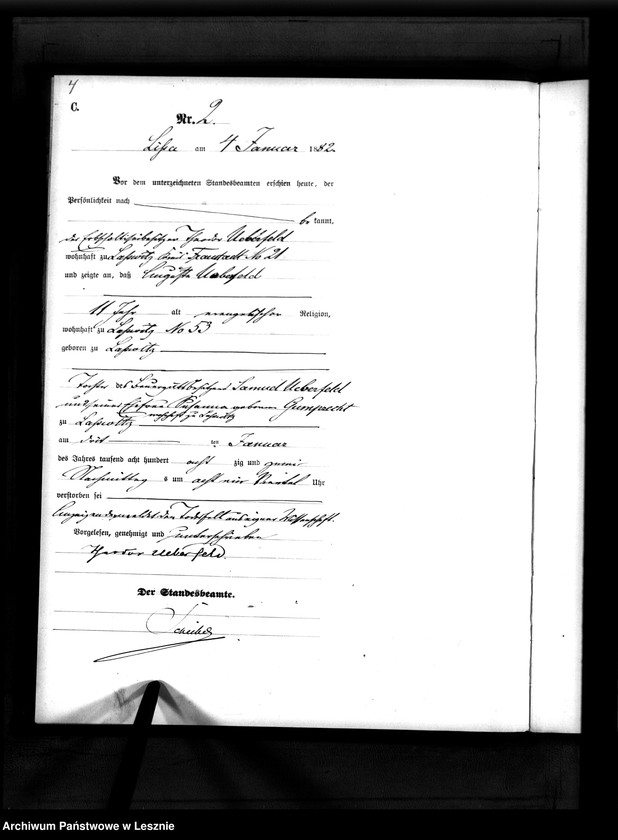 4
C.
Nr. 2.
Lissa am 4 Januar 1882.
Vor dem unterzeichneten Standesbeamten erschien heute, der
Persönlichkeit nach
be kannt,
der Theodor Ueberfeld
wohnhaft zu Lasswitz Kreis Fraustadt No 21
und zeigte an, daß Auguste Ueberfeld
11 Jahr alt evangelischer Religion,
wohnhaft zu Lasswitz No 53
geboren zu Lasswitz
Tochter des Samuel Ueberfeld
und seiner Ehefrau Susanna geborene Gumprecht
wohnhaft zu Lasswitz
zu Lasswitz
am drit ten Januar
des Jahres tausend acht hundert acht zig und zwei
Nachmittag s um acht ein Viertel Uhr
verstorben sei
Anzeigender meldet den Todesfall aus eigner Wissenschaft.
Vorgelesen, genehmigt und unterschrieben
Theodor Ueberfeld.
Der Standesbeamte.
Archiwum Państwowe w Lesznie